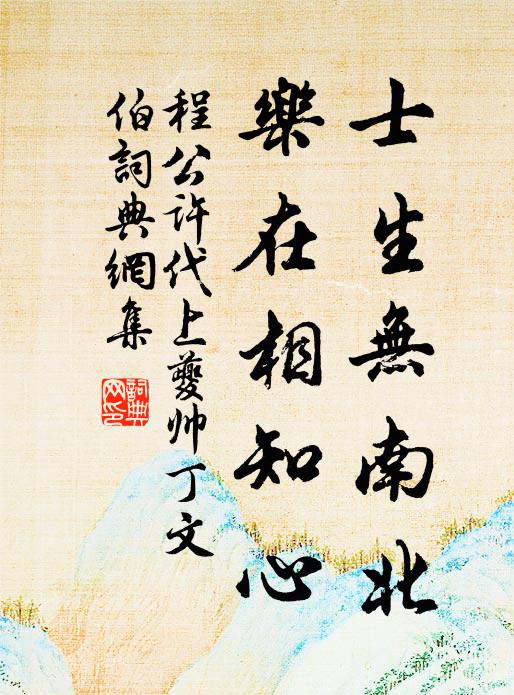 士生無南北
樂在相知心
程公許代上夔帅丁文
伯詞典網集
詞典網印